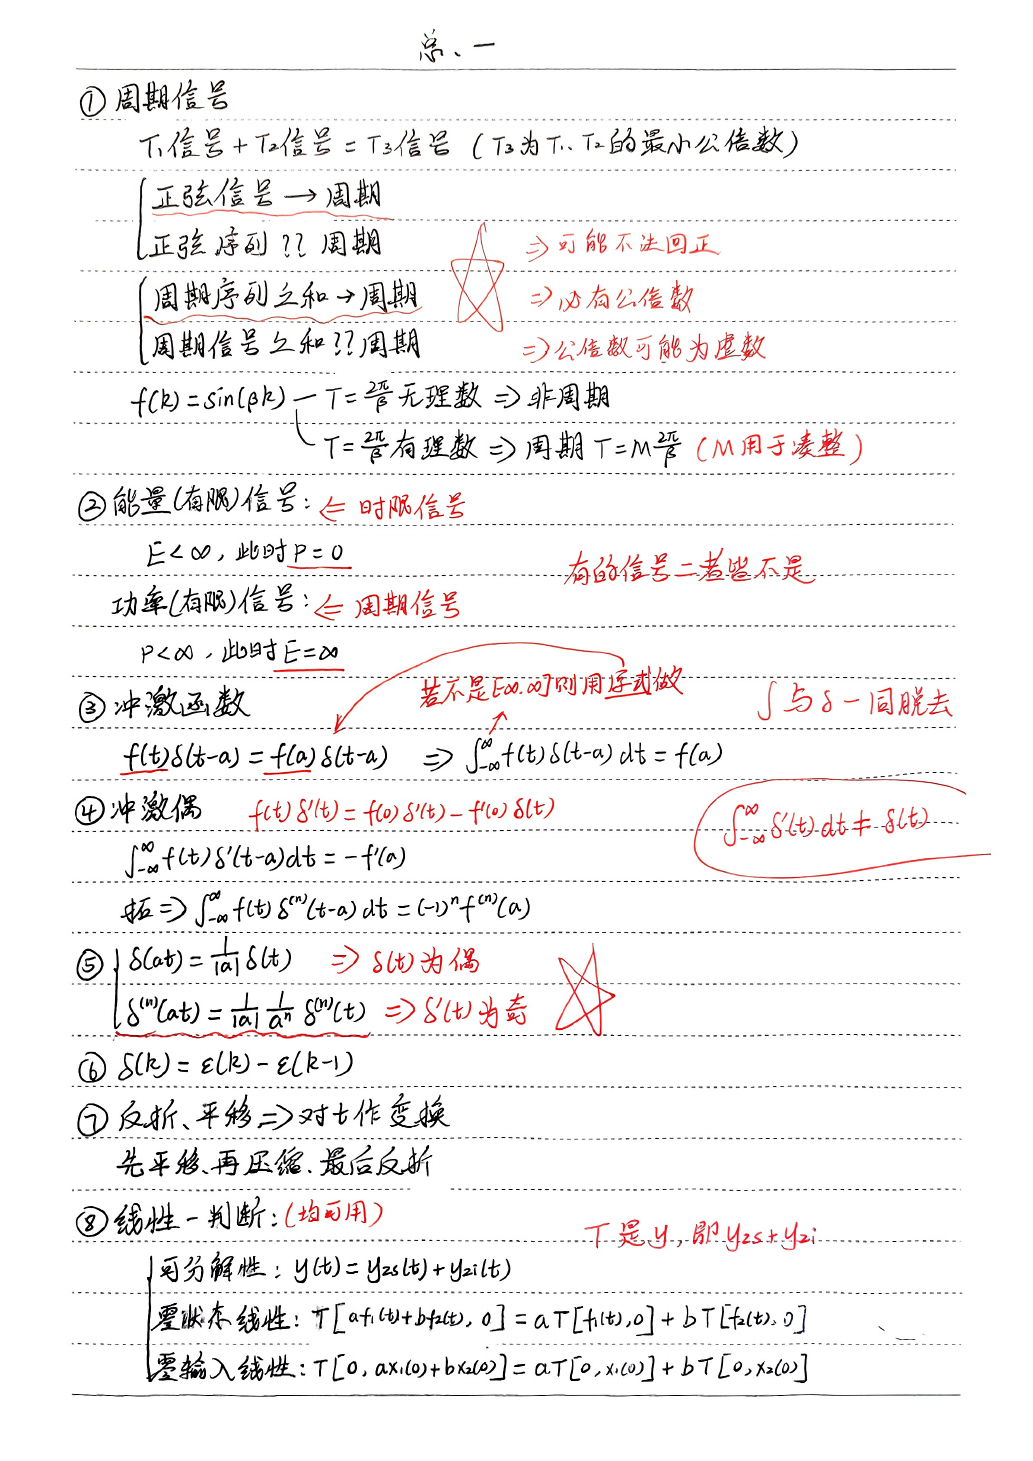 总、一
① 周期信号
T₁信号 + T₂信号 = T₃信号 (T₃为T₁、T₂的最小公倍数)
正弦信号 → 周期
正弦序列 ?? 周期 ⇒可能不法回正
周期序列之和→周期 ⇒必有公倍数
周期信号之和??周期 ⇒公倍数可能为虚数
f(k) = sin(βk) — T = 2π/β 无理数 ⇒ 非周期
T = 2π/β 有理数 ⇒ 周期 T = M 2π/β (M用于凑整)
② 能量(有限)信号: ⇐ 时限信号
E < ∞, 此时 P = 0
有的信号二者皆不是
功率(有限)信号: ⇐ 周期信号
P < ∞, 此时 E = ∞
若不是[-∞.∞]则用定式做
③ 冲激函数
∫与δ一同脱去
f(t)δ(t-a) = f(a)δ(t-a) ⇒ ∫₋∞^∞ f(t)δ(t-a)dt = f(a)
④ 冲激偶 f(t)δ'(t) = f(0)δ'(t) - f'(0)δ(t)
∫₋∞^∞ δ'(t)dt ≠ δ(t)
∫₋∞^∞ f(t)δ'(t-a)dt = -f'(a)
拓⇒ ∫₋∞^∞ f(t)δ⁽ⁿ⁾(t-a)dt = (-1)ⁿf⁽ⁿ⁾(a)
⑤ δ(at) = 1/|a| δ(t) ⇒ δ(t)为偶
δ⁽ⁿ⁾(at) = 1/|a| 1/aⁿ δ⁽ⁿ⁾(t) ⇒ δ'(t)为奇
⑥ δ(k) = ε(k) - ε(k-1)
⑦ 反折、平移⇒对t作变换
先平移、再压缩、最后反折
⑧ 线性一判断: (均可用)
T是y, 即 yzs + yzi
可分解性: y(t) = yzs(t) + yzi(t)
零状态线性: T[af₁(t)+bf₂(t), 0] = aT[f₁(t),0] + bT[f₂(t),0]
零输入线性: T[0, ax₁(0)+bx₂(0)] = aT[0, x₁(0)] + bT[0, x₂(0)]